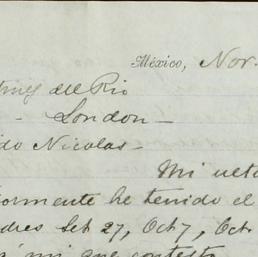 México, Nov.
del Rio
- London -
do Nicolas -
Mi
ormente he tenido el
dres Set 27, Oct 7, Oct
mi que contesto